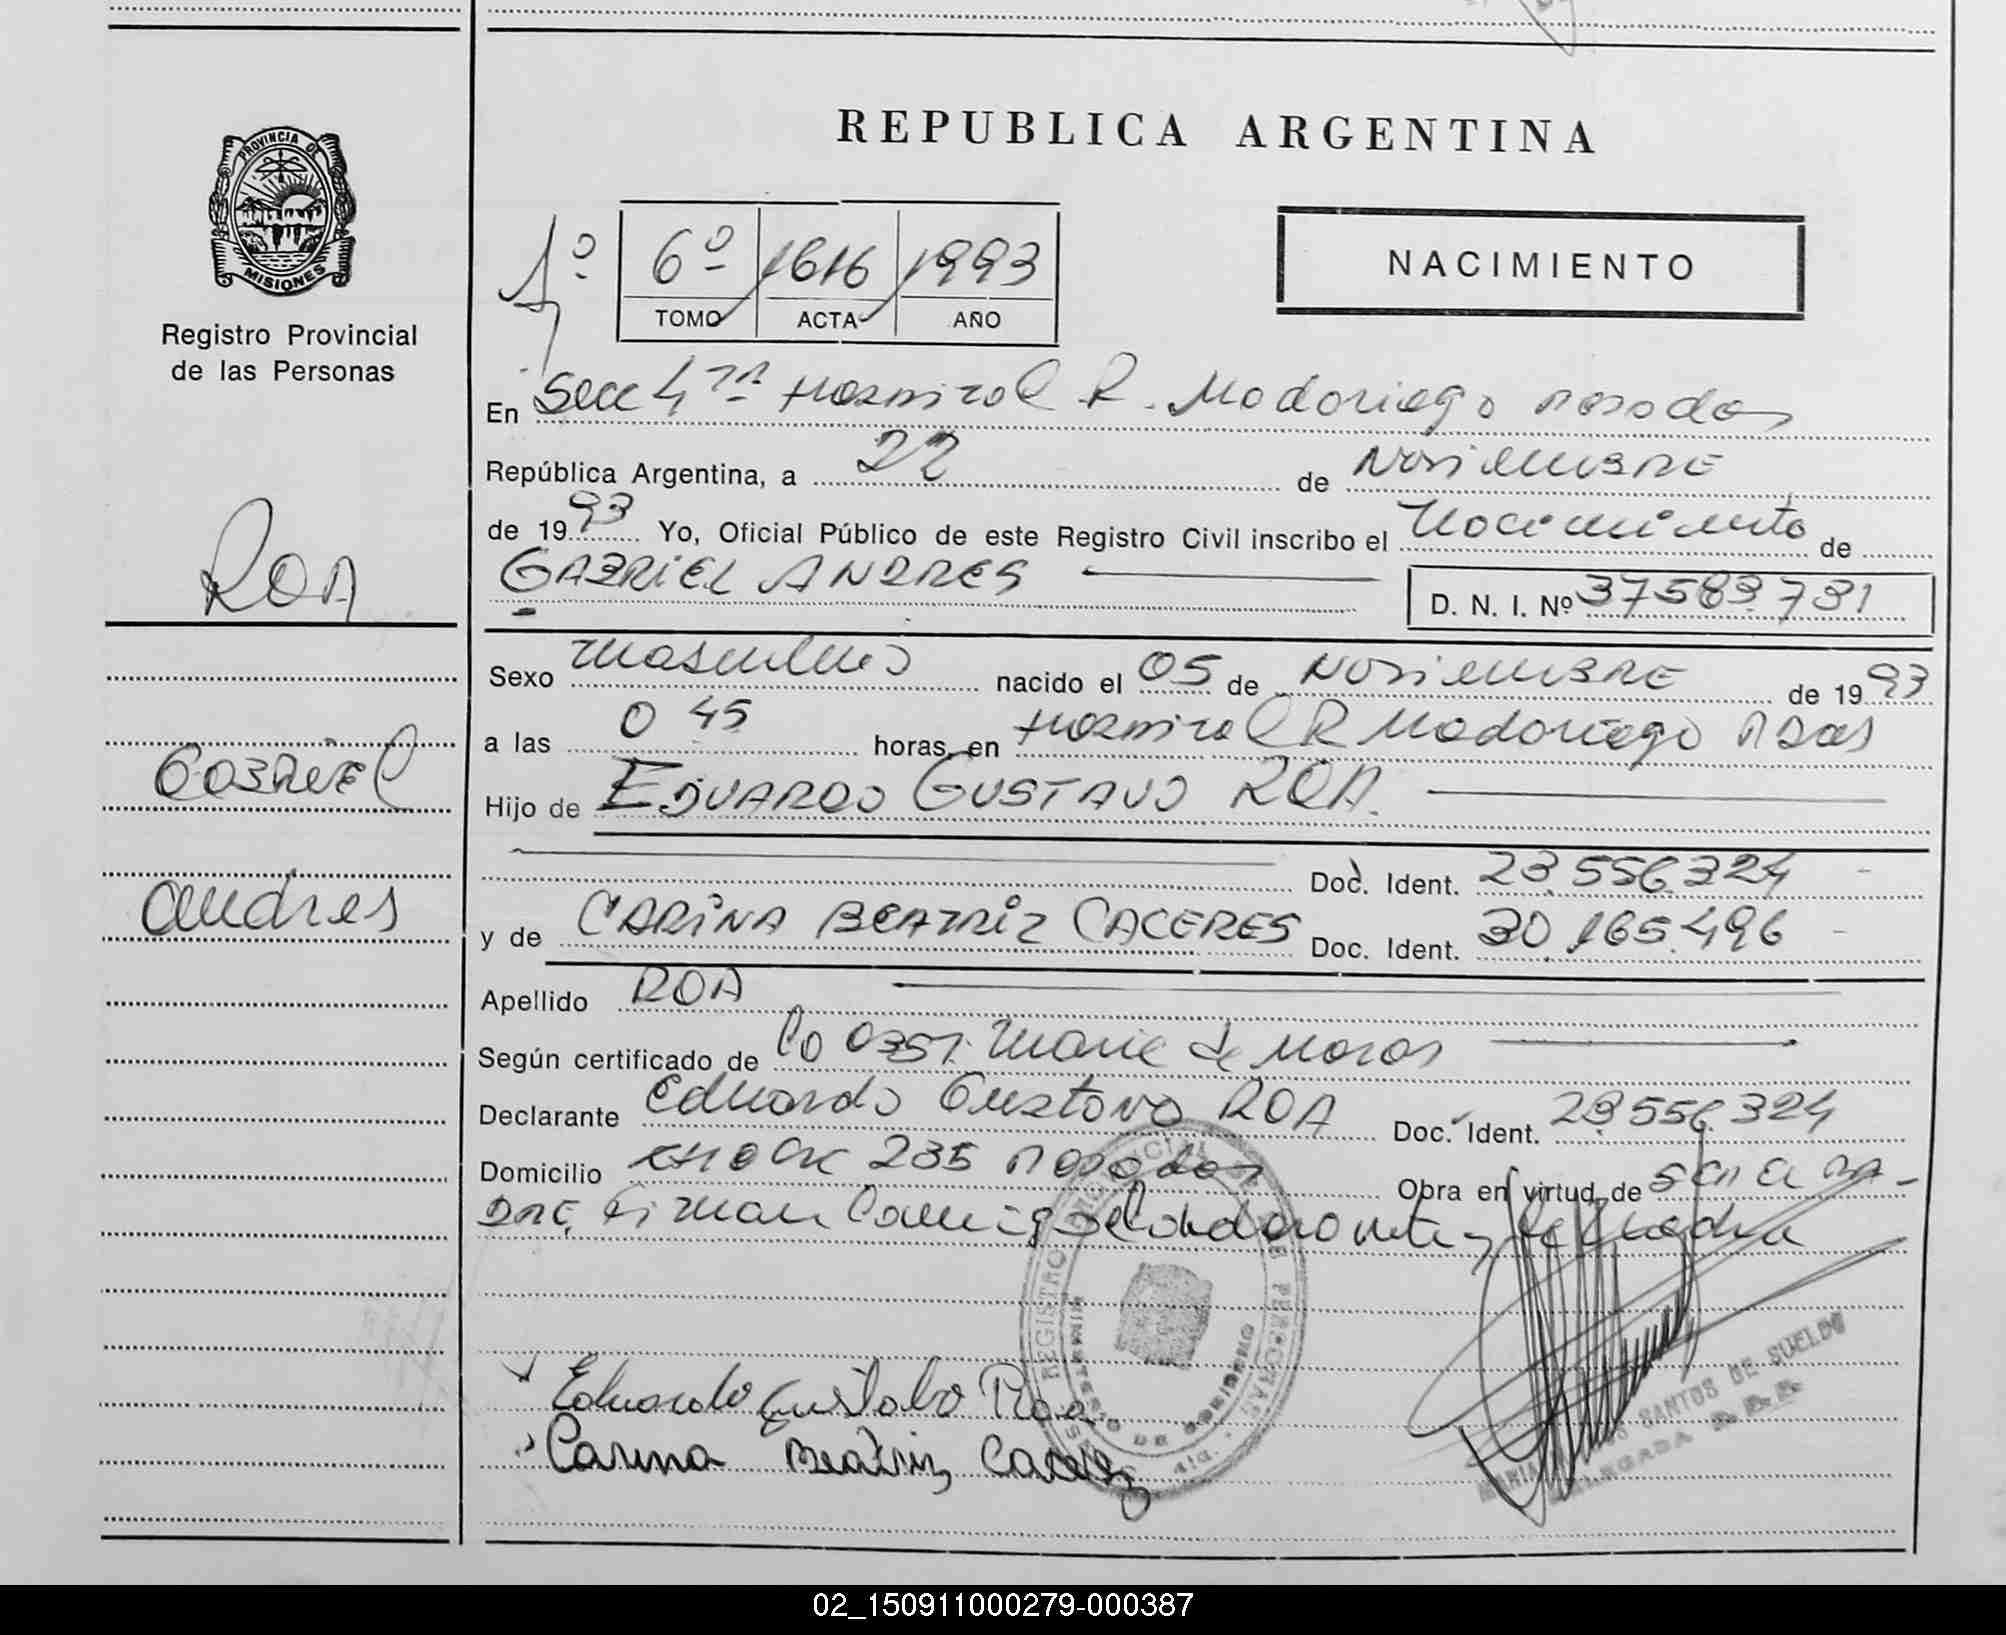 REPUBLICA ARGENTINA
PROVINCIA DE
MISIONES
Registro Provincial
de las Personas
1º 6º 1616 1993
TOMO ACTA AÑO
NACIMIENTO
En Secc 4ta Hospital R. Madariaga Posadas
República Argentina, a 22 de Noviembre
de 1993 Yo, Oficial Público de este Registro Civil inscribo el Nacimiento de
GABRIEL ANDRES D. N. I. Nº 37583731
ROA
Sexo masculino nacido el 05 de Noviembre de 1993
a las 0 45 horas, en Hospital R Madariaga Psas
Gabriel
Hijo de EDUARDO GUSTAVO ROA.
Doc. Ident. 23.556.324
Andres
y de CARINA BEATRIZ CACERES Doc. Ident. 30.165.496
Apellido ROA
Según certificado de la Obst. Marie de
Declarante Eduardo Gustavo ROA Doc. Ident. 23556324
Domicilio 235 Posadas Obra en virtud de ser el PA-
DRE, Firman Conmigo el declarante y la madre
Eduardo Gustabo Roa
Carina Beatriz Caceres
REGISTRO PROVINCIAL DE LAS PERSONAS
MINISTERIO DE GOBIERNO
SANTOS DE SUELDO
DELEGADA
02_150911000279-000387